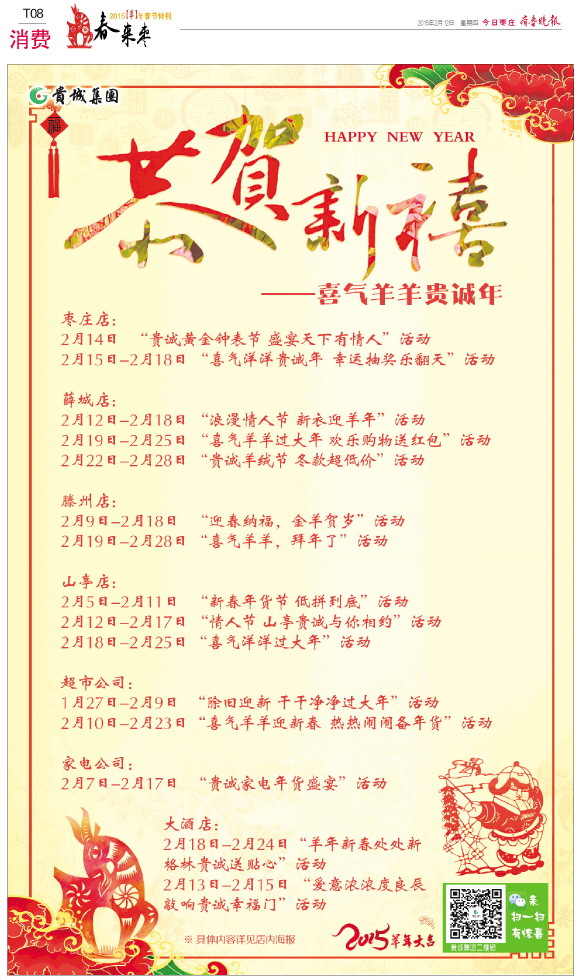 T08
消费
2015【羊】年春节特刊
春来枣
2015年2月12日 星期四 今日枣庄 齐鲁晚报
贵诚集团
福
恭贺新禧
HAPPY NEW YEAR
——喜气羊羊贵诚年
枣庄店：
2月14日 “贵诚黄金钟表节 盛宴天下有情人”活动
2月15日-2月18日 “喜气洋洋贵诚年 幸运抽奖乐翻天”活动
薛城店：
2月12日-2月18日 “浪漫情人节 新衣迎羊年”活动
2月19日-2月25日 “喜气羊羊过大年 欢乐购物送红包”活动
2月22日-2月28日 “贵诚羊绒节 冬款超低价”活动
滕州店：
2月9日-2月18日 “迎春纳福，金羊贺岁”活动
2月19日-2月28日 “喜气羊羊，拜年了”活动
山亭店：
2月5日-2月11日 “新春年货节 低拼到底”活动
2月12日-2月17日 “情人节 山亭贵诚与你相约”活动
2月18日-2月25日 “喜气洋洋过大年”活动
超市公司：
1月27日-2月9日 “除旧迎新 干干净净过大年”活动
2月10日-2月23日 “喜气羊羊迎新春 热热闹闹备年货”活动
家电公司：
2月7日-2月17日 “贵诚家电年货盛宴”活动
大酒店：
2月18日-2月24日 “羊年新春处处新
格林贵诚送贴心”活动
2月13日-2月15日 “爱意浓浓度良辰
敲响贵诚幸福门”活动
※ 具体内容详见店内海报
2015羊年大吉
贵诚集团二维码
亲
扫一扫
有惊喜